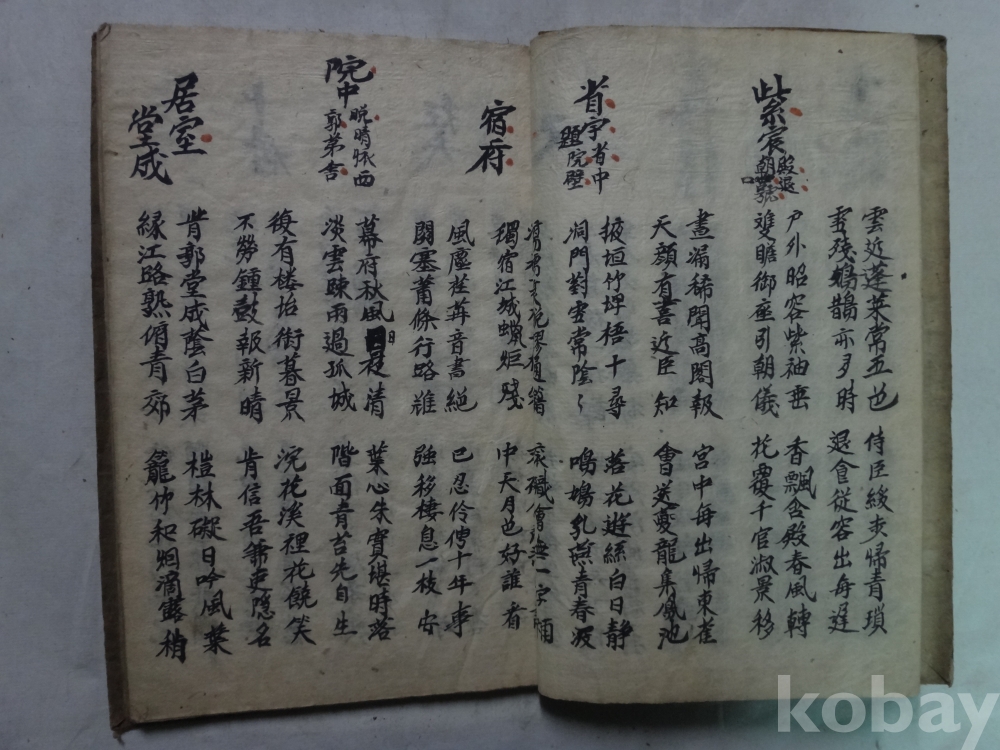 雲近蓬莱常五色 侍臣緩步歸青瑣
雪殘鳷鵲亦多時 退食從容出每遲
紫宸殿退朝口號
戶外昭容紫袖垂 香飄合殿春風轉
雙瞻御座引朝儀 花覆千官淑景移
晝漏稀聞高閣報 宮中每出歸東雀
天顔有喜近臣知 會送夔龍集鳳池
省宇省中題院壁
掖垣竹埤梧十尋 落花遊絲白日静
洞門對雪常陰〻 鳴鳩乳燕青春深
袞職曾無一字補
宿府
獨宿江城蝋炬殘 中天月色好誰看
風塵荏苒音書絕 已忍伶俜十年事
關塞蕭條行路難 強移棲息一枝安
院中晚晴怀西郭茅舍
幕府秋風日夜清 葉心朱實堪時落
淡雲疎雨過孤城 階面青苔先自生
復有楼坮銜暮景 浣花溪裡花饒笑
不勞鍾鼓報新晴 肯信吾兼吏隱名
居室堂成
背郭堂成蔭白茅 榿林礙日吟風葉
緣江路熟俯青郊 籠竹和烟滴露梢
kobay